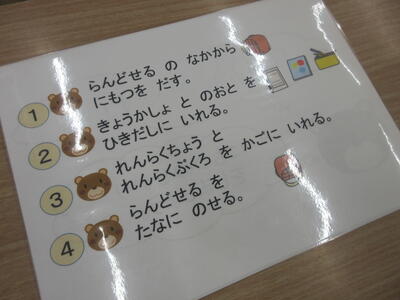 1 らんどせる の なかから
にもつを だす。
2 きょうかしょ と のおと を
ひきだしに いれる。
3 れんらくちょう と
れんらくぶくろ を かごに いれる。
4 らんどせる を
たなに のせる。